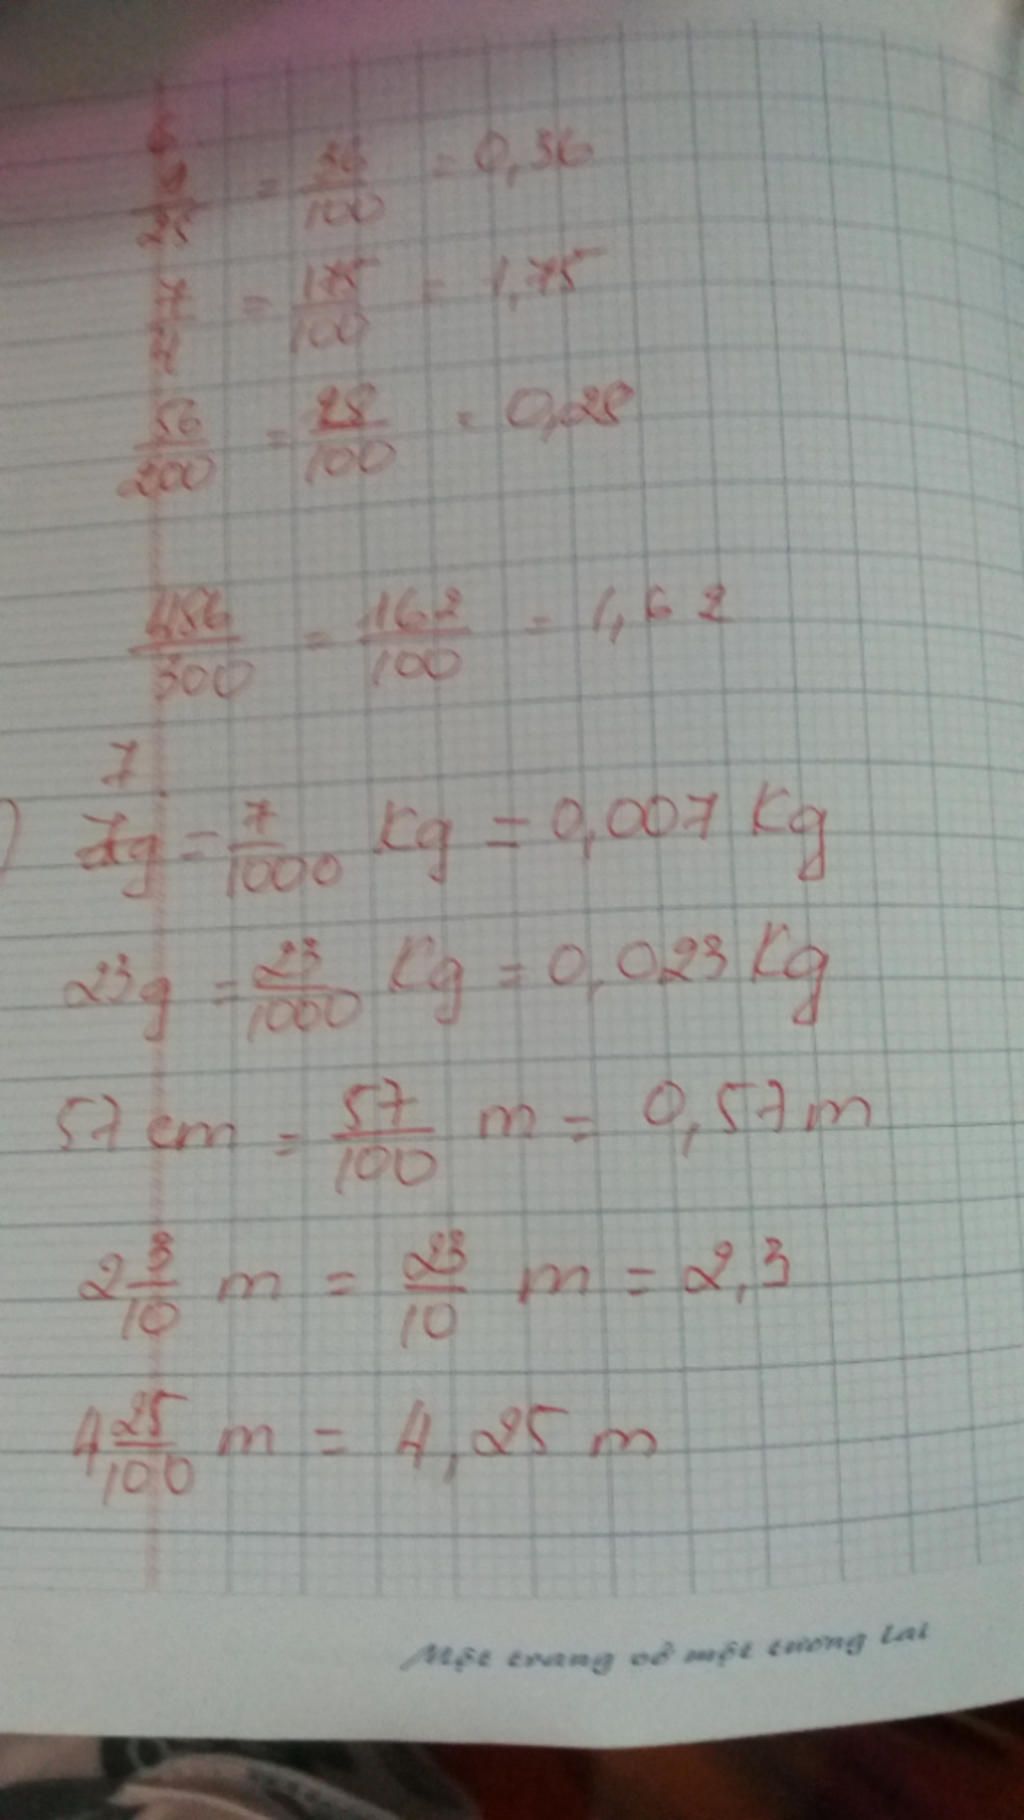 6
9/25 = 36/100 = 0,36
7/4 = 175/100 = 1,75
56/200 = 28/100 = 0,28
486/300 = 162/100 = 1,62
7
) 7g = 7/1000 Kg = 0,007 Kg
23g = 23/1000 Kg = 0,023 Kg
57 cm = 57/100 m = 0,57 m
2 3/10 m = 23/10 m = 2,3
4 25/100 m = 4,25 m
Một trang vở một tương lai